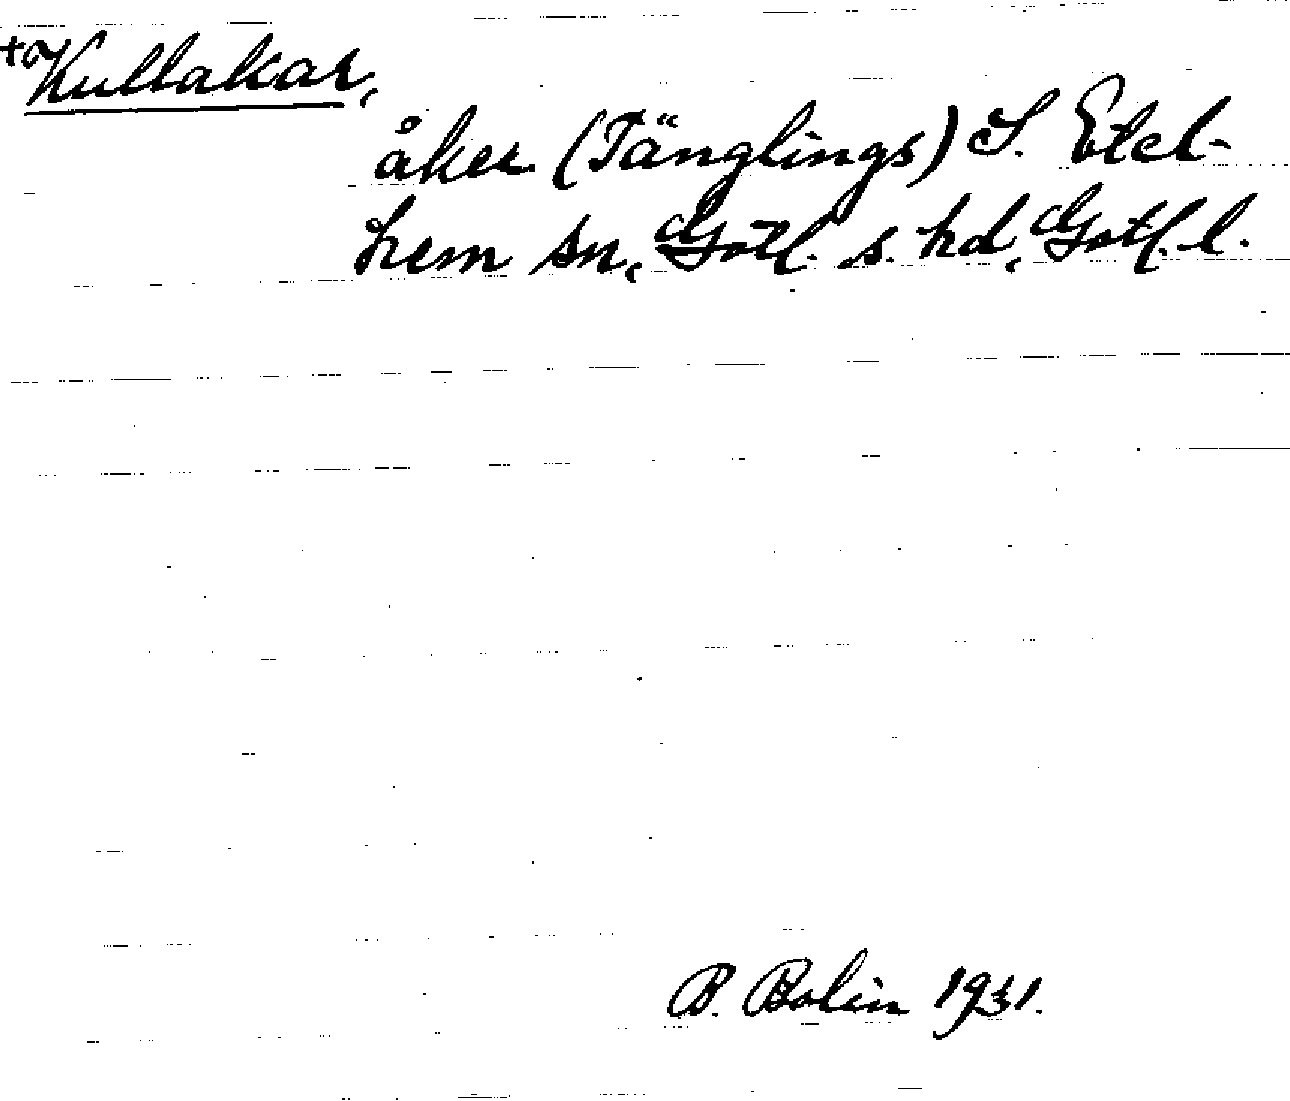 Kullakar,
åker (Tänglings) S. Etel-
hem sn, Gotl. s. hd, Gotl. l.
B. Bolin 1931.